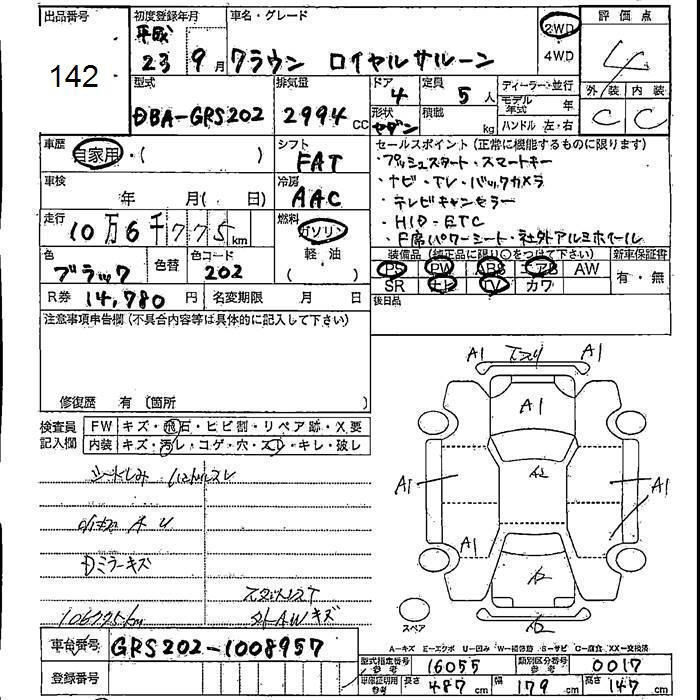 出品番号 初度登録年月 車名・グレード 2WD 評価点
142 平成23 9月 クラウン ロイヤルサルーン 4WD 4
型式 排気量 ドア 定員 ディーラー・並行 外装 内装
DBA-GRS202 2994cc 4 5人 モデル年式 年 C C
形状 セダン 積載 kg ハンドル 左・右
車歴 自家用・( ) シフト FAT セールスポイント(正常に機能するものに限ります)
・プッシュスタート・スマートキー
車検 年 月( 日) 冷房 AAC ・ナビ・TV・バックカメラ
・テレビキャンセラー
走行 10万6千775km 燃料 ガソリン ・HID・ETC
軽・油 ( ) ・F席パワーシート・社外アルミホイール
色 ブラック 色替 色コード 202 装備品(純正品に限り○をつけて下さい) 新車保証書
PS PW ABS エアB AW 有・無
R券 14,780円 名変期限 月 日 SR ナビ TV カワ
注意事項申告欄(不具合内容等は具体的に記入して下さい) 後日品
修復歴 有 〔箇所 〕
検査員記入欄 FW キズ・飛石・ヒビ割・リペア跡・X要
内装 キズ・汚レ・コゲ・穴・スレ・キレ・破レ
Dミラーキズ
106775km 社外AWキズ
A1 A1
A1
A2
A1 A1
A1
A2
A2
スペア
A-キズ E-エクボ U-凹み W-補修跡 S-サビ C-腐食 XX-交換済
車台番号 GRS202-1008957
型式指定番号 参考 16055 類別区分番号 参考 0017
登録番号 車庫証明用 参考 長さ 487cm 幅 179cm 高さ 147cm